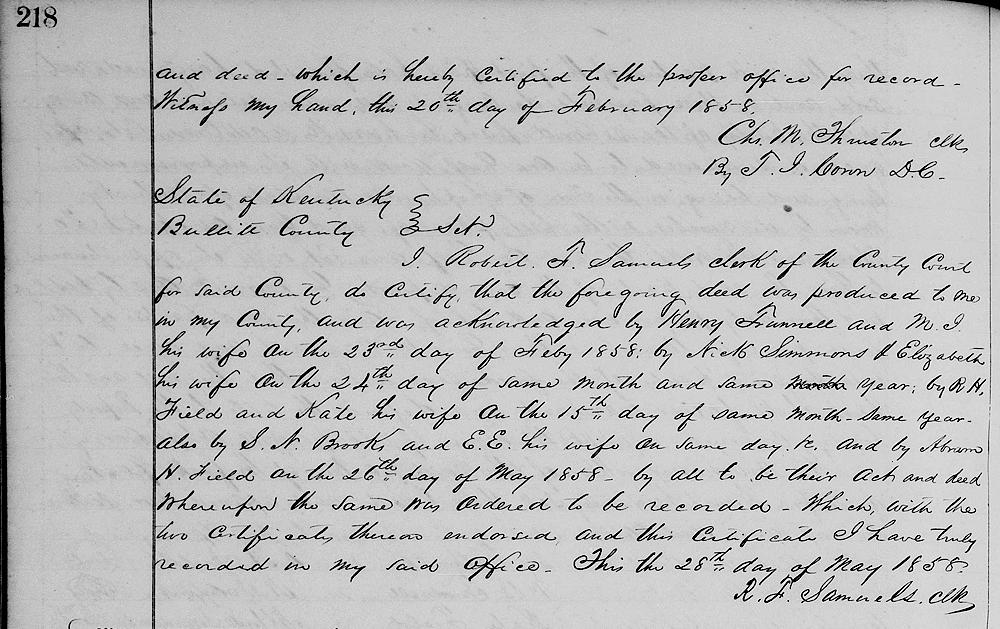 218
and deed - which is hereby certified to the proper office for record -
Witness my hand, this 20th day of February 1858.
Chs. M. Thruston clk
By T. J. Conn D.C.
State of Kentucky
Bullitt County Sct.
I. Robert. F. Samuels clerk of the County Court
for said County, do certify, that the foregoing deed was produced to me
in my County, and was acknowledged by Henry Trunnell and M. J.
his wife on the 23rd day of Feby 1858; by Nick Simmons & Elizabeth
his wife on the 24th day of same month and same month year; by R H.
Field and Kate his wife on the 15th day of same month - same year -
also by S. N. Brooks and E. E. his wife on same day. &c. and by Abram
H. Field on the 26th day of May 1858 - by all to be their act and deed
Whereupon the same was ordered to be recorded - Which, with the
two certificates thereon endorsed, and this certificate I have truly
recorded in my said office - This the 28th day of May 1858
R. F. Samuels. clk